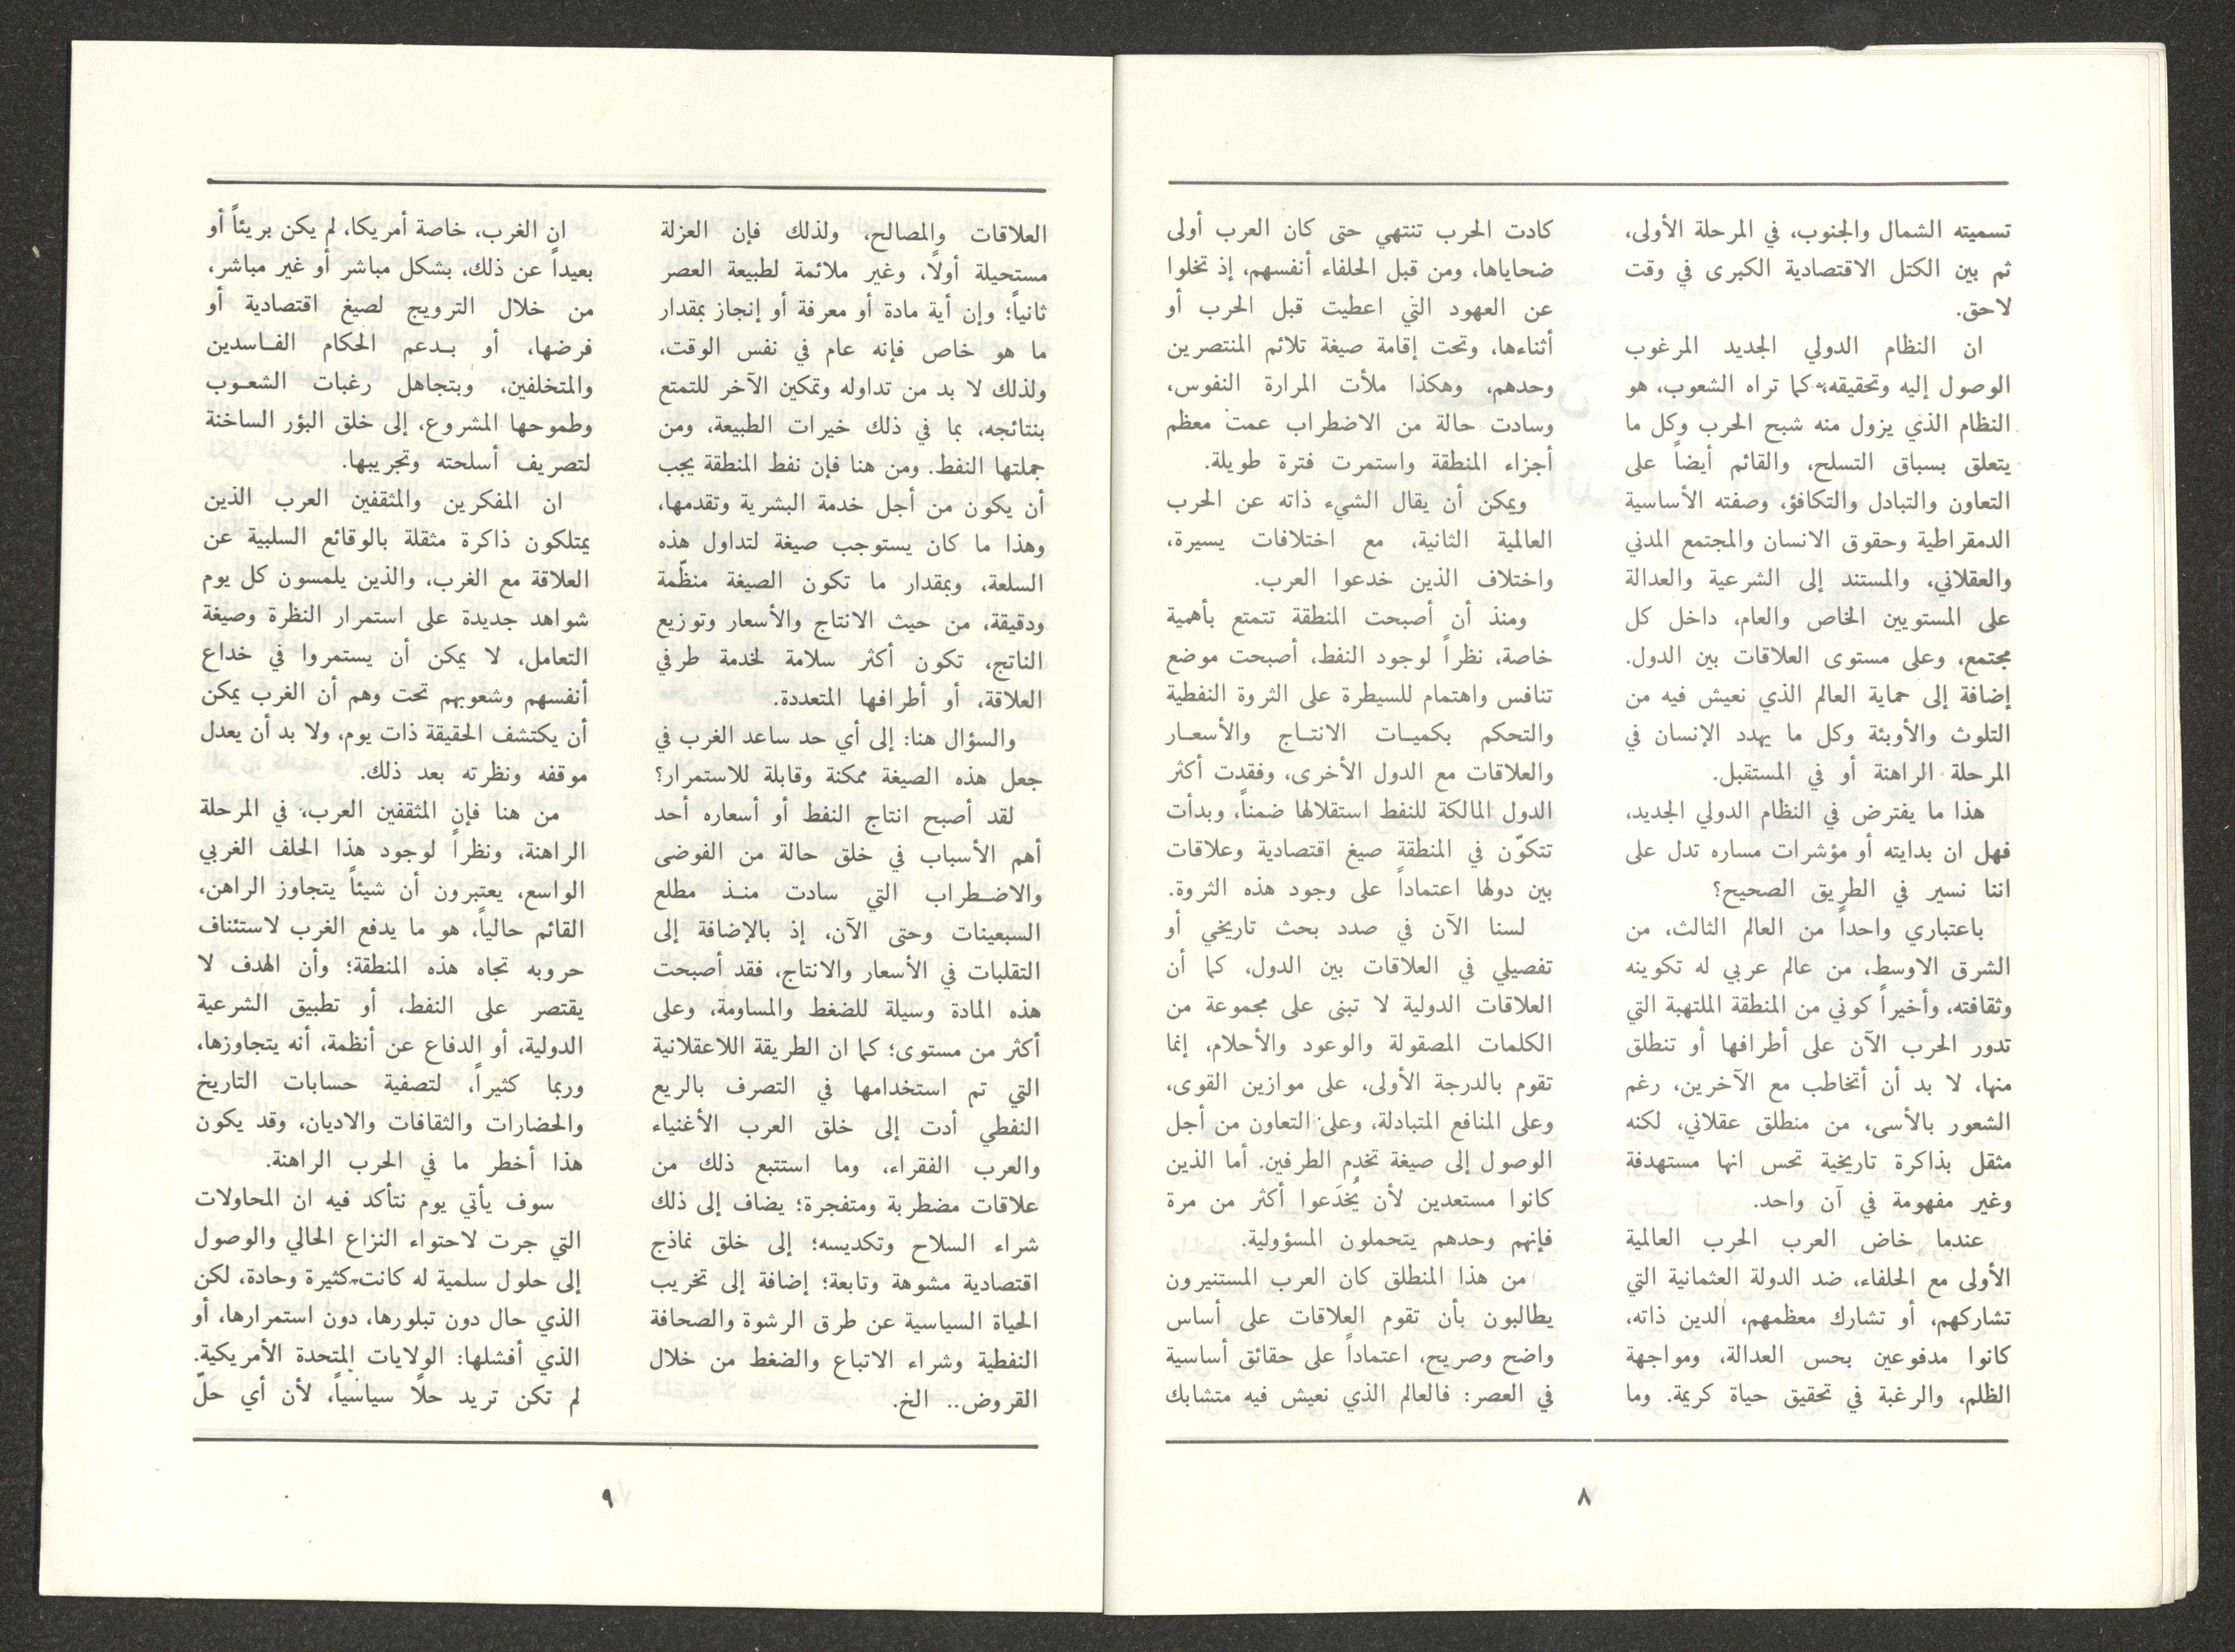 تسميته الشمال والجنوب، في المرحلة الأولى،
ثم بين الكتل الاقتصادية الكبرى في وقت
لاحق.
ان النظام الدولي الجديد المرغوب
الوصول إليه وتحقيقه، كما تراه الشعوب، هو
النظام الذي يزول منه شبح الحرب وكل ما
يتعلق بسباق التسلح، والقائم أيضاً على
التعاون والتبادل والتكافؤ، وصفته الأساسية
الدمقراطية وحقوق الانسان والمجتمع المدني
والعقلاني، والمستند إلى الشرعية والعدالة
على المستويين الخاص والعام، داخل كل
مجتمع، وعلى مستوى العلاقات بين الدول.
إضافة إلى حماية العالم الذي نعيش فيه من
التلوث والأوبئة وكل ما يهدد الإنسان في
المرحلة الراهنة أو في المستقبل.
هذا ما يفترض في النظام الدولي الجديد،
فهل ان بدايته أو مؤشرات مساره تدل على
اننا نسير في الطريق الصحيح؟
باعتباري واحداً من العالم الثالث، من
الشرق الاوسط، من عالم عربي له تكوينه
وثقافته، وأخيراً كوني من المنطقة الملتهبة التي
تدور الحرب الآن على أطرافها أو تنطلق
منها، لا بد أن أتخاطب مع الآخرين، رغم
الشعور بالأسى، من منطلق عقلاني، لكنه
مثقل بذاكرة تاريخية تحس انها مستهدفة
وغير مفهومة في آن واحد.
عندما خاض العرب الحرب العالمية
الأولى مع الحلفاء، ضد الدولة العثمانية التي
تشاركهم، أو تشارك معظمهم، الدين ذاته،
كانوا مدفوعين بحس العدالة، ومواجهة
الظلم، والرغبة في تحقيق حياة كريمة. وما
كادت الحرب تنتهي حتى كان العرب أولى
ضحاياها، ومن قبل الحلفاء أنفسهم، إذ تخلوا
عن العهود التي اعطيت قبل الحرب أو
أثناءها، وتحت إقامة صيغة تلائم المنتصرين
وحدهم، وهكذا ملأت المرارة النفوس،
وسادت حالة من الاضطراب عمت معظم
أجزاء المنطقة واستمرت فترة طويلة.
ويمكن أن يقال الشيء ذاته عن الحرب
العالمية الثانية، مع اختلافات يسيرة،
واختلاف الذين خدعوا العرب.
ومنذ أن أصبحت المنطقة تتمتع بأهمية
خاصة، نظراً لوجود النفط، أصبحت موضع
تنافس واهتمام للسيطرة على الثروة النفطية
والتحكم بكميـات الانتـاج والأسعـار
والعلاقات مع الدول الأخرى، وفقدت أكثر
الدول المالكة للنفط استقلالها ضمناً، وبدأت
تتكوّن في المنطقة صيغ اقتصادية وعلاقات
بين دولها اعتماداً على وجود هذه الثروة.
لسنا الآن في صدد بحث تاريخي أو
تفصيلي في العلاقات بين الدول، كما أن
العلاقات الدولية لا تبنى على مجموعة من
الكلمات المصقولة والوعود والأحلام، إنما
تقوم بالدرجة الأولى، على موازين القوى،
وعلى المنافع المتبادلة، وعلى التعاون من أجل
الوصول إلى صيغة تخدم الطرفين. أما الذين
كانوا مستعدين لأن يُخدَعوا أكثر من مرة
فإنهم وحدهم يتحملون المسؤولية.
من هذا المنطلق كان العرب المستنيرون
يطالبون بأن تقوم العلاقات على أساس
واضح وصريح، اعتماداً على حقائق أساسية
في العصر: فالعالم الذي نعيش فيه متشابك
٨
العلاقات والمصالح، ولذلك فإن العزلة
مستحيلة أولًا، وغير ملائمة لطبيعة العصر
ثانياً؛ وإن أية مادة أو معرفة أو إنجاز بمقدار
ما هو خاص فإنه عام في نفس الوقت،
ولذلك لا بد من تداوله وتمكين الآخر للتمتع
بنتائجه، بما في ذلك خيرات الطبيعة، ومن
جملتها النفط. ومن هنا فإن نفط المنطقة يجب
أن يكون من أجل خدمة البشرية وتقدمها،
وهذا ما كان يستوجب صيغة لتداول هذه
السلعة، وبمقدار ما تكون الصيغة منظّمة
ودقيقة، من حيث الانتاج والأسعار وتوزيع
الناتج، تكون أكثر سلامة لخدمة طرفي
العلاقة، أو أطرافها المتعددة.
والسؤال هنا: إلى أي حد ساعد الغرب في
جعل هذه الصيغة ممكنة وقابلة للاستمرار؟
لقد أصبح انتاج النفط أو أسعاره أحد
أهم الأسباب في خلق حالة من الفوضى
والاضـطراب التي سادت منـذ مطلع
السبعينات وحتى الآن، إذ بالإضافة إلى
التقلبات في الأسعار والانتاج، فقد أصبحت
هذه المادة وسيلة للضغط والمساومة، وعلى
أكثر من مستوى؛ كما ان الطريقة اللاعقلانية
التي تم استخدامها في التصرف بالريع
النفطي أدت إلى خلق العرب الأغنياء
والعرب الفقراء، وما استتبع ذلك من
علاقات مضطربة ومتفجرة؛ يضاف إلى ذلك
شراء السلاح وتكديسه؛ إلى خلق نماذج
اقتصادية مشوهة وتابعة؛ إضافة إلى تخريب
الحياة السياسية عن طرق الرشوة والصحافة
النفطية وشراء الاتباع والضغط من خلال
القروض.. الخ.
ان الغرب، خاصة أمريكا، لم يكن بريئاً أو
بعيداً عن ذلك، بشكل مباشر أو غير مباشر،
من خلال الترويج لصيغ اقتصادية أو
فرضها، أو بـدعم الحكام الفـاسدين
والمتخلفين، وبتجاهل رغبات الشعـوب
وطموحها المشروع، إلى خلق البؤر الساخنة
لتصريف أسلحته وتجريبها.
ان المفكرين والمثقفين العرب الذين
يمتلكون ذاكرة مثقلة بالوقائع السلبية عن
العلاقة مع الغرب، والذين يلمسون كل يوم
شواهد جديدة على استمرار النظرة وصيغة
التعامل، لا يمكن أن يستمروا في خداع
أنفسهم وشعوبهم تحت وهم أن الغرب يمكن
أن يكتشف الحقيقة ذات يوم، ولا بد أن يعدل
موقفه ونظرته بعد ذلك.
من هنا فإن المثقفين العرب، في المرحلة
الراهنة، ونظراً لوجود هذا الحلف الغربي
الواسع، يعتبرون أن شيئاً يتجاوز الراهن،
القائم حالياً، هو ما يدفع الغرب لاستئناف
حروبه تجاه هذه المنطقة؛ وأن الهدف لا
يقتصر على النفط، أو تطبيق الشرعية
الدولية، أو الدفاع عن أنظمة، أنه يتجاوزها،
وربما كثيراً، لتصفية حسابات التاريخ
والحضارات والثقافات والاديان، وقد يكون
هذا أخطر ما في الحرب الراهنة.
سوف يأتي يوم نتأكد فيه ان المحاولات
التي جرت لاحتواء النزاع الحالي والوصول
إلى حلول سلمية له كانت كثيرة وحادة، لكن
الذي حال دون تبلورها، دون استمرارها، أو
الذي أفشلها: الولايات المتحدة الأمريكية.
لم تكن تريد حلًا سياسياً، لأن أي حلّ
٩